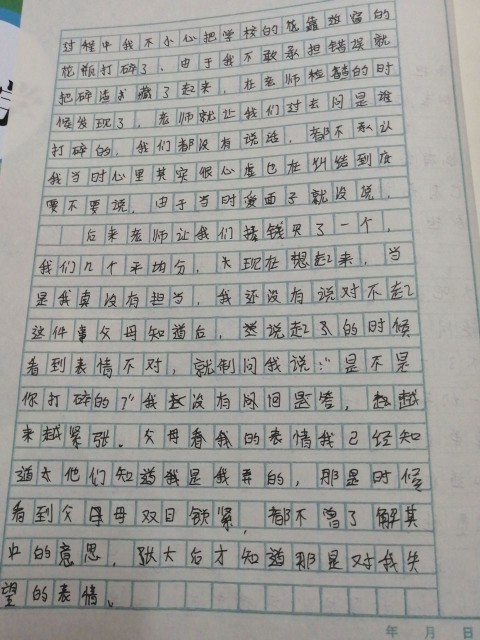 过程中我不小心把学校的放着的
花瓶打碎了，由于我不敢承担错误就
把碎渣藏了起来，在老师检查的时
候发现了，老师就让我们过去问是谁
打碎的，我们都没有说话，都不承认
我当时心里其实很心虚也在纠结到底
要不要说，由于当时爱面子就没说，
后来老师让我们接钱买了一个，
我们几个平均分，现在想起来，当
是我真没有担当，我还没有说对不起
这件事父母知道后，说起了的时候
看到表情不对，就倒问我说：“是不是
你打碎的了”我没有回答，越
来越紧张，父母看我的表情我已经知
道他们知道我是我弄的，那是时候
看到父母双目锁紧，都不曾了解其
中的意思，张大后才知道那是对我失
望的表情、
年 月 日